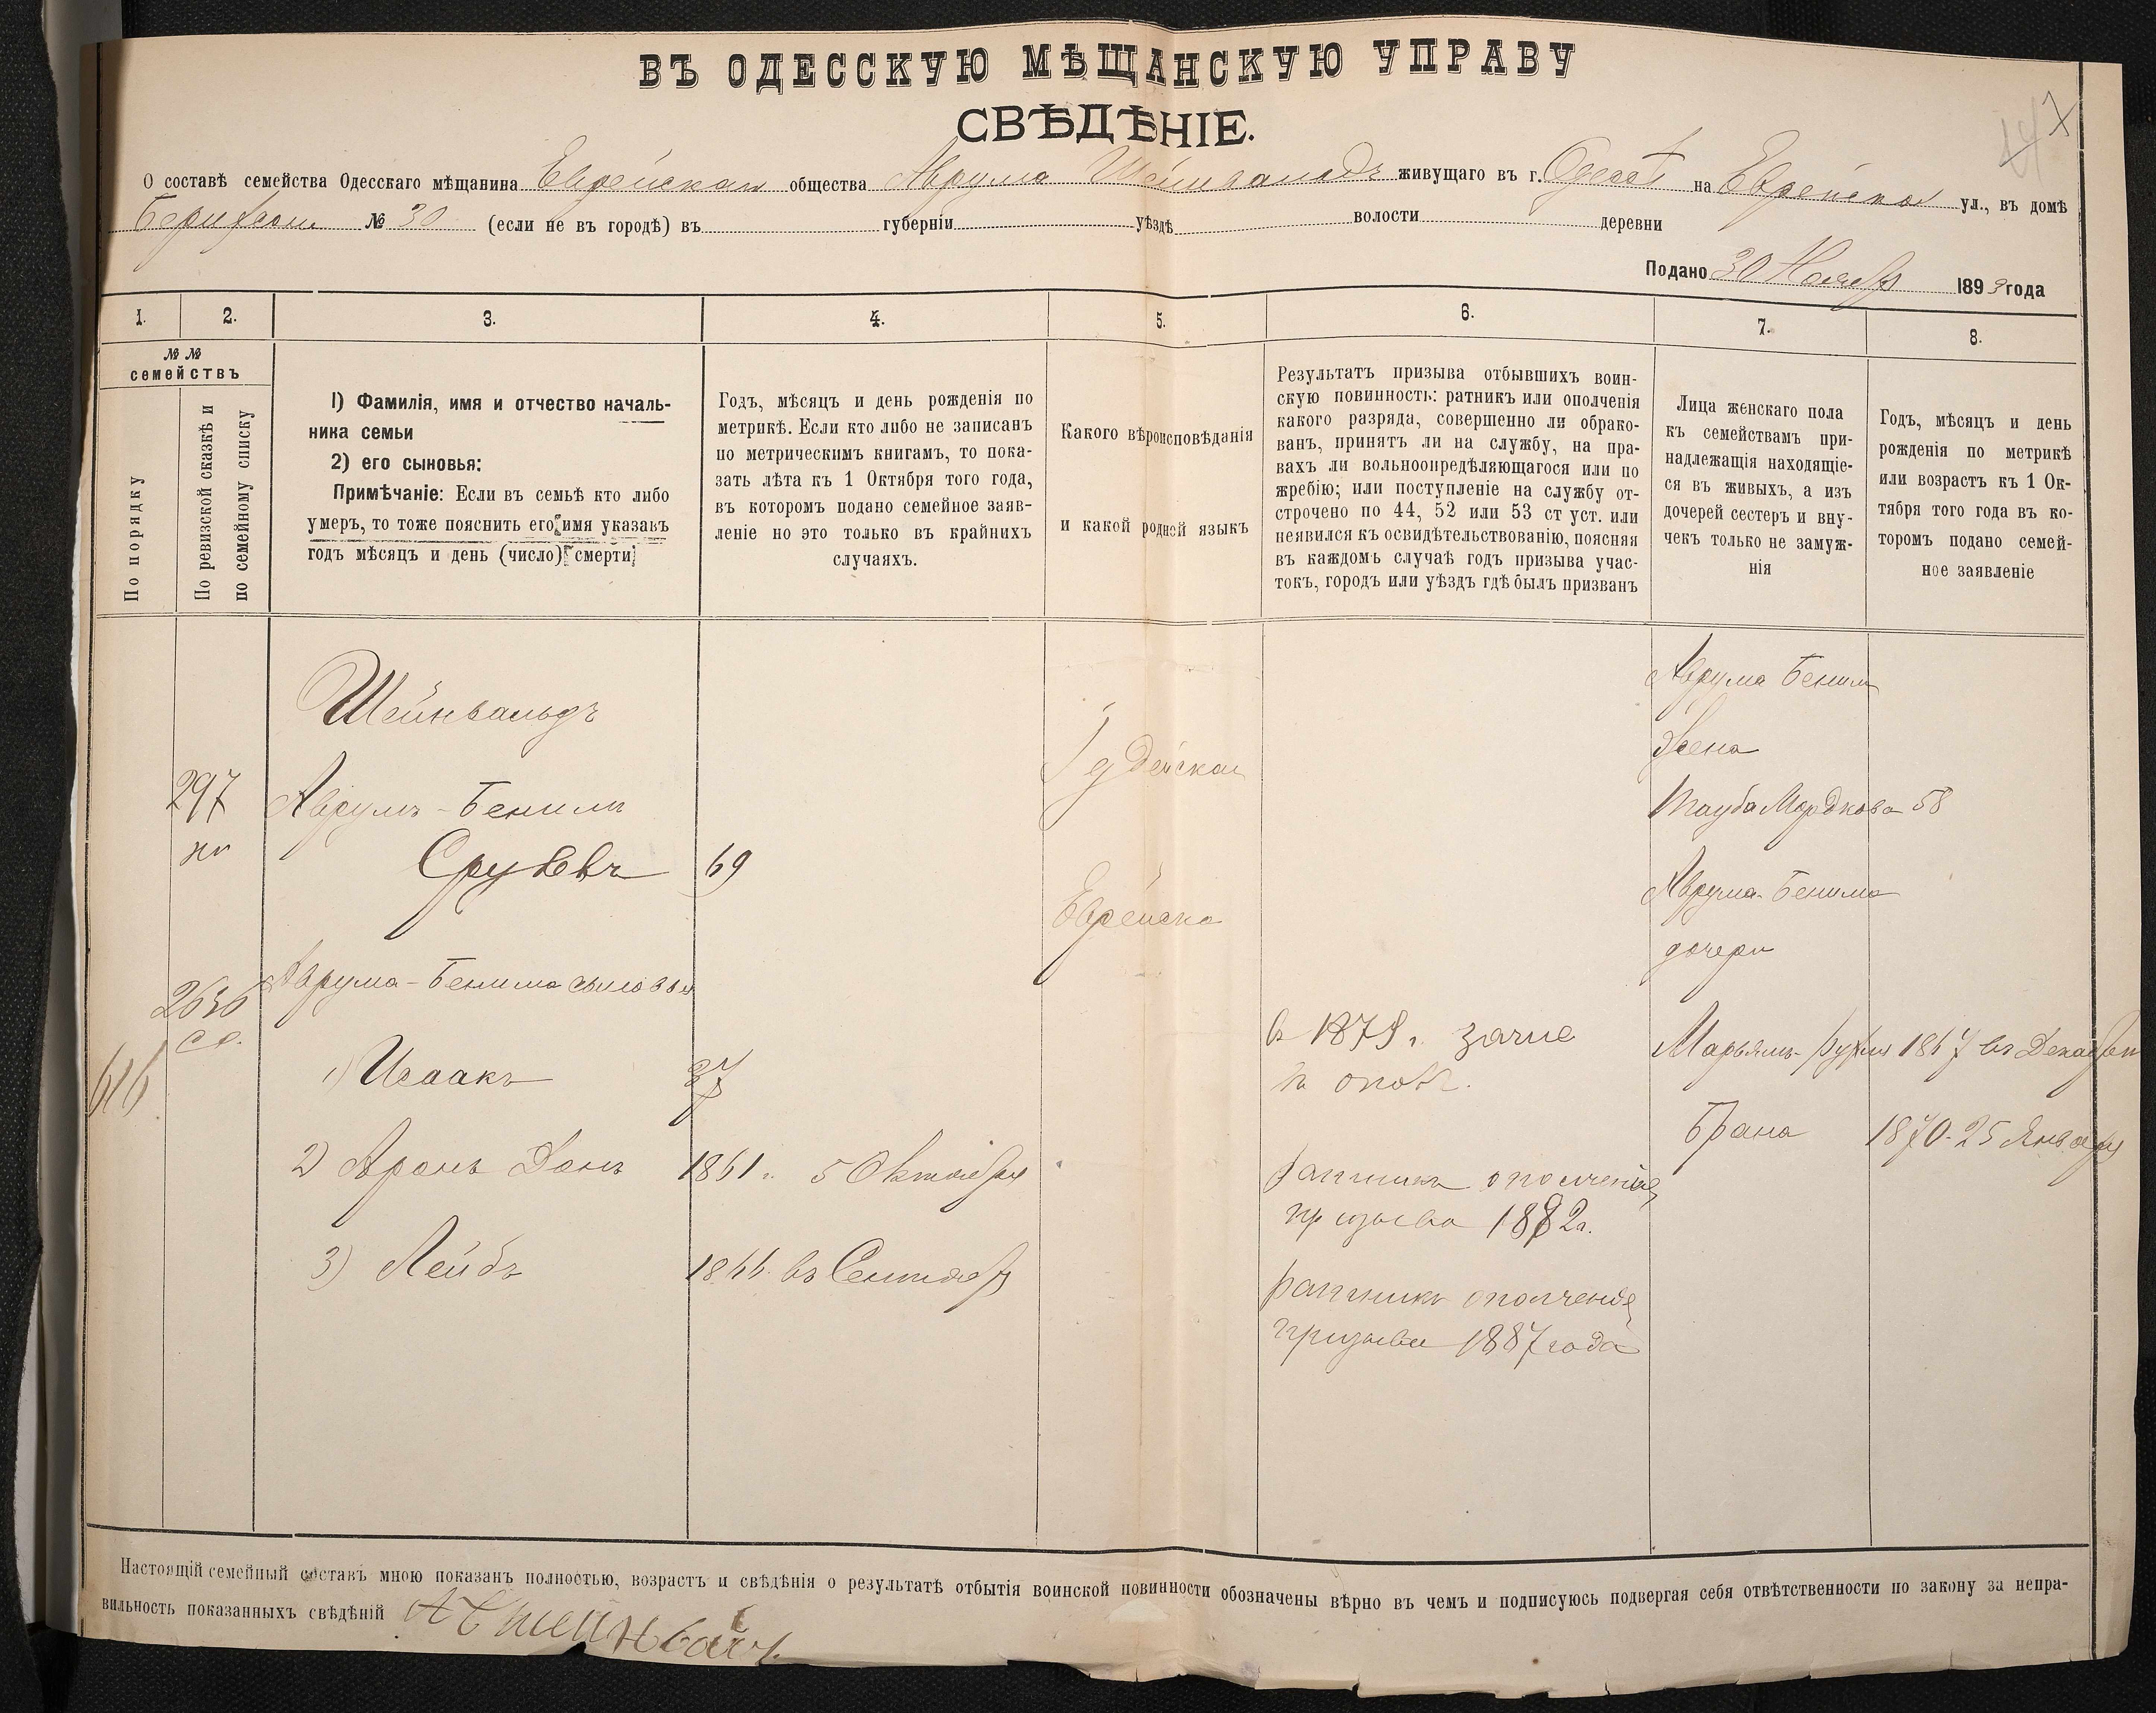 ВЪ ОДЕССКУЮ МѢЩАНСКУЮ УПРАВУ
СВѢДѢНІЕ.
О составѣ семейства Одесскаго мѣщанина Еврейскаго общества Аврума Шейнвальдъ живущаго въ г. Одессѣ на Еврейской ул., въ домѣ
№ 30 (если не въ городѣ) въ губерніи уѣздѣ волости деревни
Подано 30 Ноябр 1893 года
1.
2.
3.
4.
5.
6.
7.
8.
№ №
семействъ
По порядку
По ревизской сказкѣ и
по семейному списку
1) Фамилія, имя и отчество началь-
ника семьи
2) его сыновья:
Примѣчаніе: Если въ семьѣ кто либо
умеръ, то тоже пояснить его имя указавъ
годъ мѣсяцъ и день (число) смерти
Годъ, мѣсяцъ и день рожденія по
метрикѣ. Если кто либо не записанъ
по метрическимъ книгамъ, то пока-
зать лѣта къ 1 Октября того года,
въ которомъ подано семейное заяв-
леніе но это только въ крайнихъ
случаяхъ.
Какого вѣроисповѣданія
и какой родной языкъ
Результатъ призыва отбывшихъ воин-
скую повинность: ратникъ или ополченія
какого разряда, совершенно ли обрако-
ванъ, принятъ ли на службу, на пра-
вахъ ли вольноопредѣляющагося или по
жребію; или поступленіе на службу от-
строчено по 44, 52 или 53 ст уст. или
неявился къ освидѣтельствованію, поясняя
въ каждомъ случаѣ годъ призыва учас-
токъ, городъ или уѣздъ гдѣ былъ призванъ
Лица женскаго пола
къ семействамъ при-
надлежащія находящіе-
ся въ живыхъ, а изъ
дочерей сестеръ и вну-
чекъ только не замуж-
нія
Годъ, мѣсяцъ и день
рожденія по метрикѣ
или возрастъ къ 1 Ок-
тября того года въ ко-
торомъ подано семей-
ное заявленіе
616
297
2636
Шейнвальдъ
Аврумъ-Бенимъ
Срулевъ 69
Аврума-Бенима сыновья
1) Исаакъ 37
2) Аронъ Донъ 1861 г. 5 Октября
3) Лейбъ 1866 въ Сентябр
Іудейская
Еврейска
в 1879 г. зачис
въ опол.
ратникъ ополченія
призыва 1882 г.
ратникъ ополченія
призыва 1887 года
Аврума Беним
жена
Тауба Мордкова 58
Аврума-Бенима
дочери
Марьямъ-Рухля 1867 въ Декабри
Брана 1870. 25 Января
Настоящій семейный составъ мною показанъ полностью, возрастъ и свѣдѣнія о результатѣ отбытія воинской повинности обозначены вѣрно въ чемъ и подписуюсь подвергая себя отвѣтственности по закону за непра-
вильность показанныхъ свѣдѣній А Шейнвал